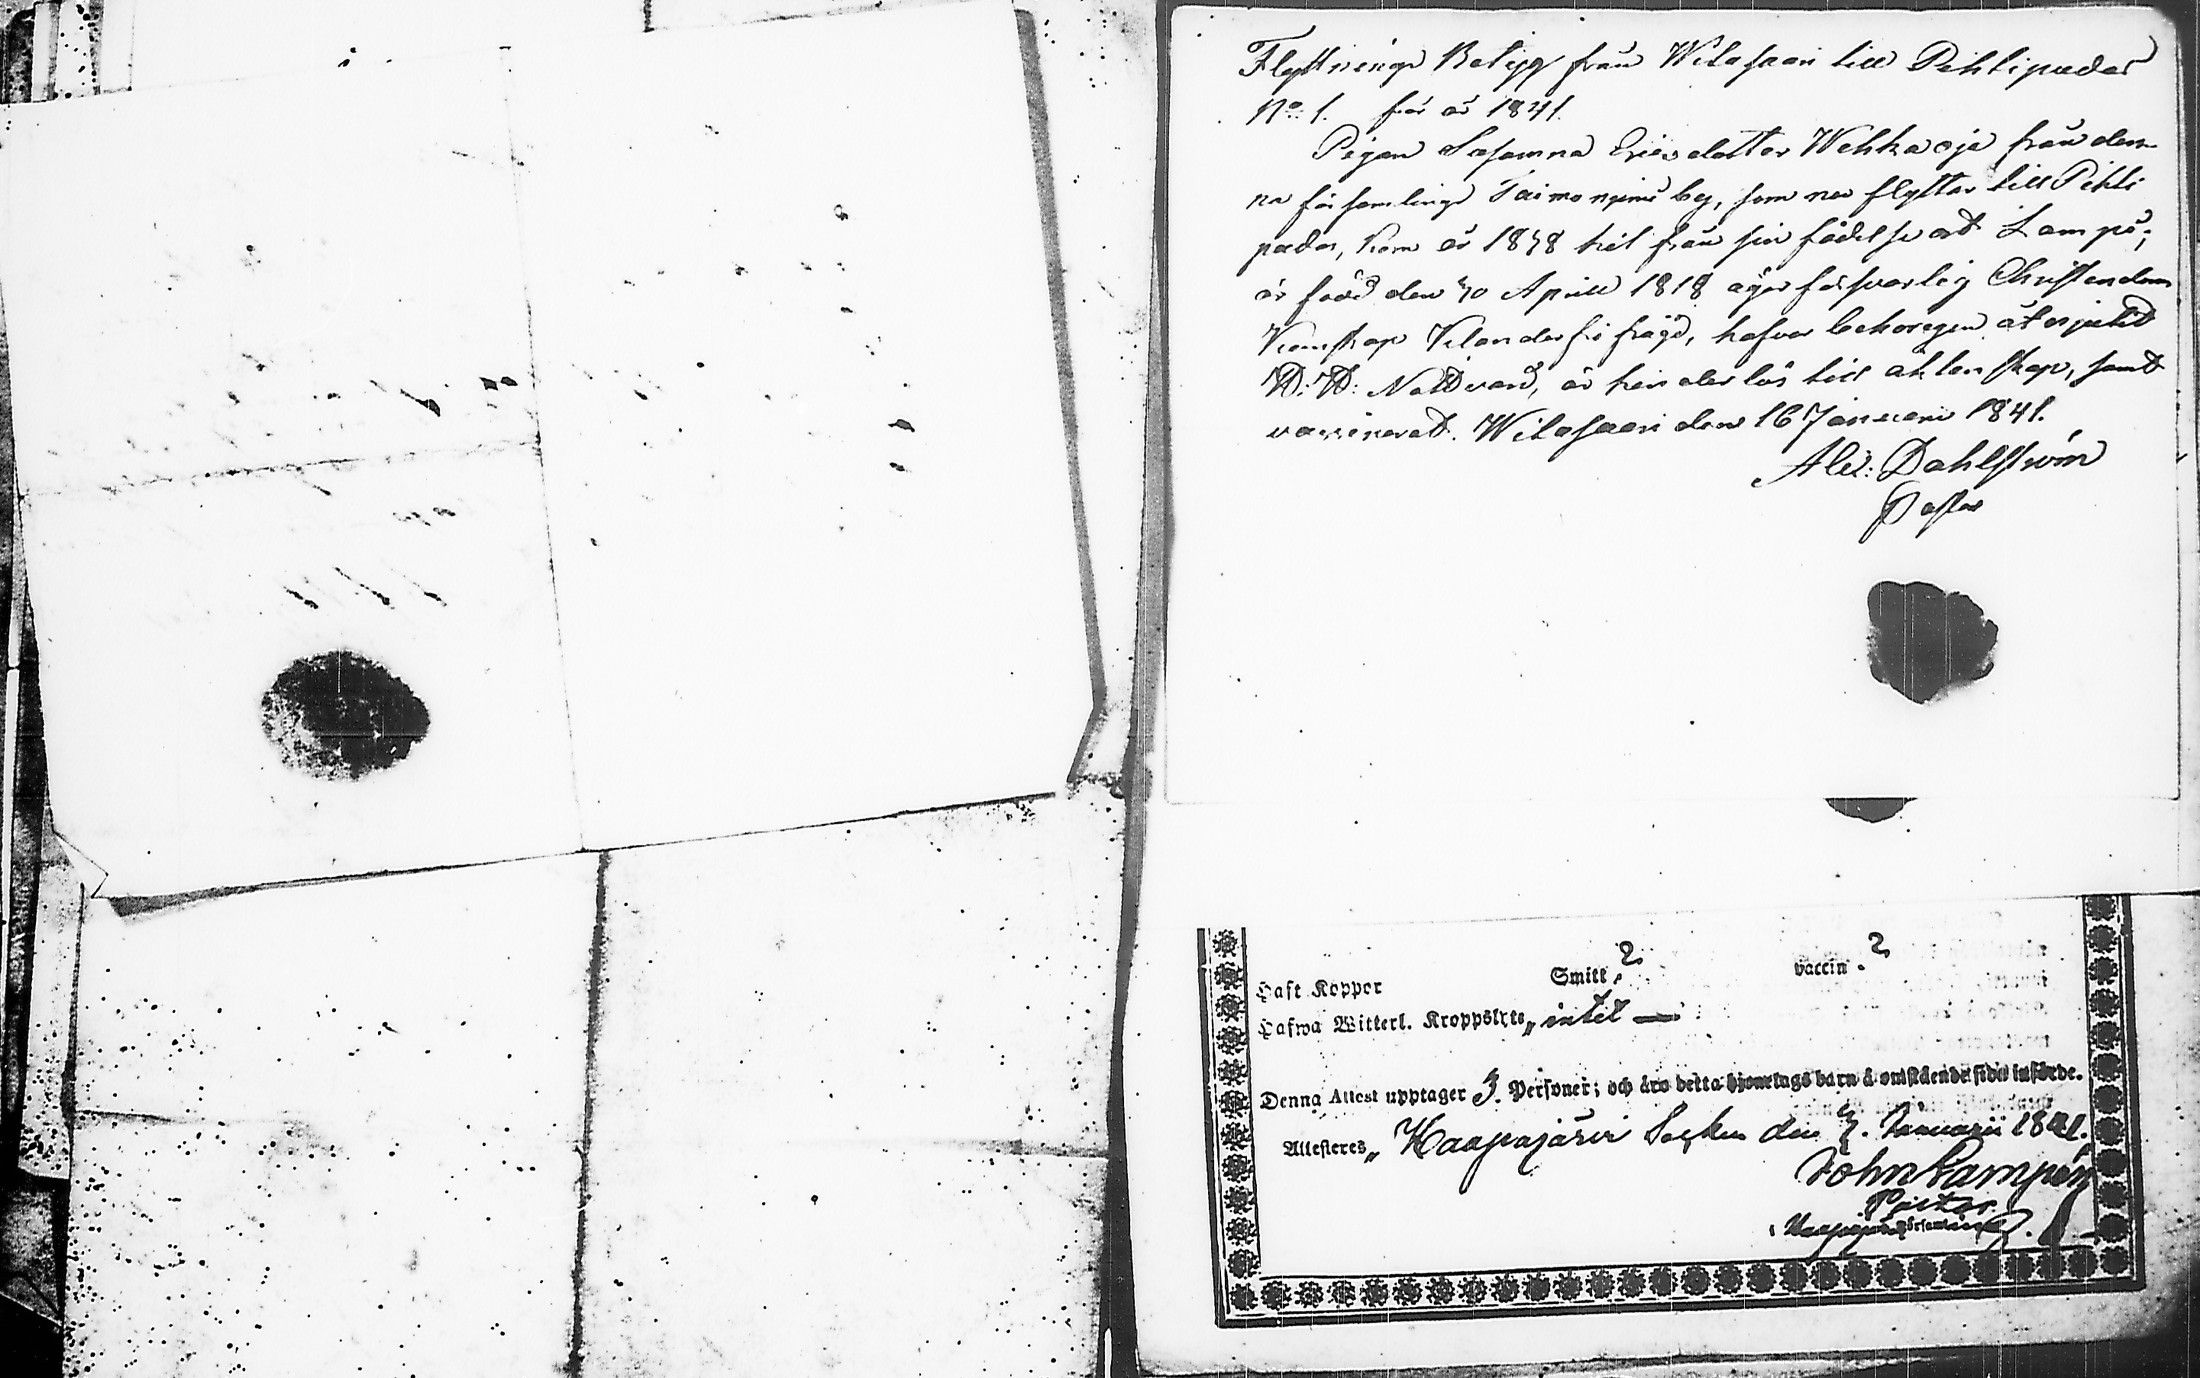 Flyttnings Betyg från Witasaari till Pihtipudas
No 1. för år 1841.
Pigan Susanna Ericsdotter Wehkaoja från den-
na församlings Taimoniemi by, som nu flyttar till Pihti
pudas, kom år 1838 hit från sin födelse ort Lampis;
är född den 30 April 1818 äger försvarlig Christendoms
Kunskap klanderfri frägd, hafver behörigen åtnjutit
H. H. Nattvard, är hinderlös till äktenskap, samt
vaccinerad. Witasaari den 16 Januari 1841.
Alex: Dahlström
Pastor
Haft Koppor Smitt „ 2 vaccin „ 2
Hafwa Witterl. Kroppslyte „ intet —
Denna Attest upptager 3. Personer; och äro detta hjonelags barn å omstående sida införde.
Attesteres „ Haapajärvi Socken den 7. Januarii 1841.
John Lampén
Pastor
i Haapajärvi församling.